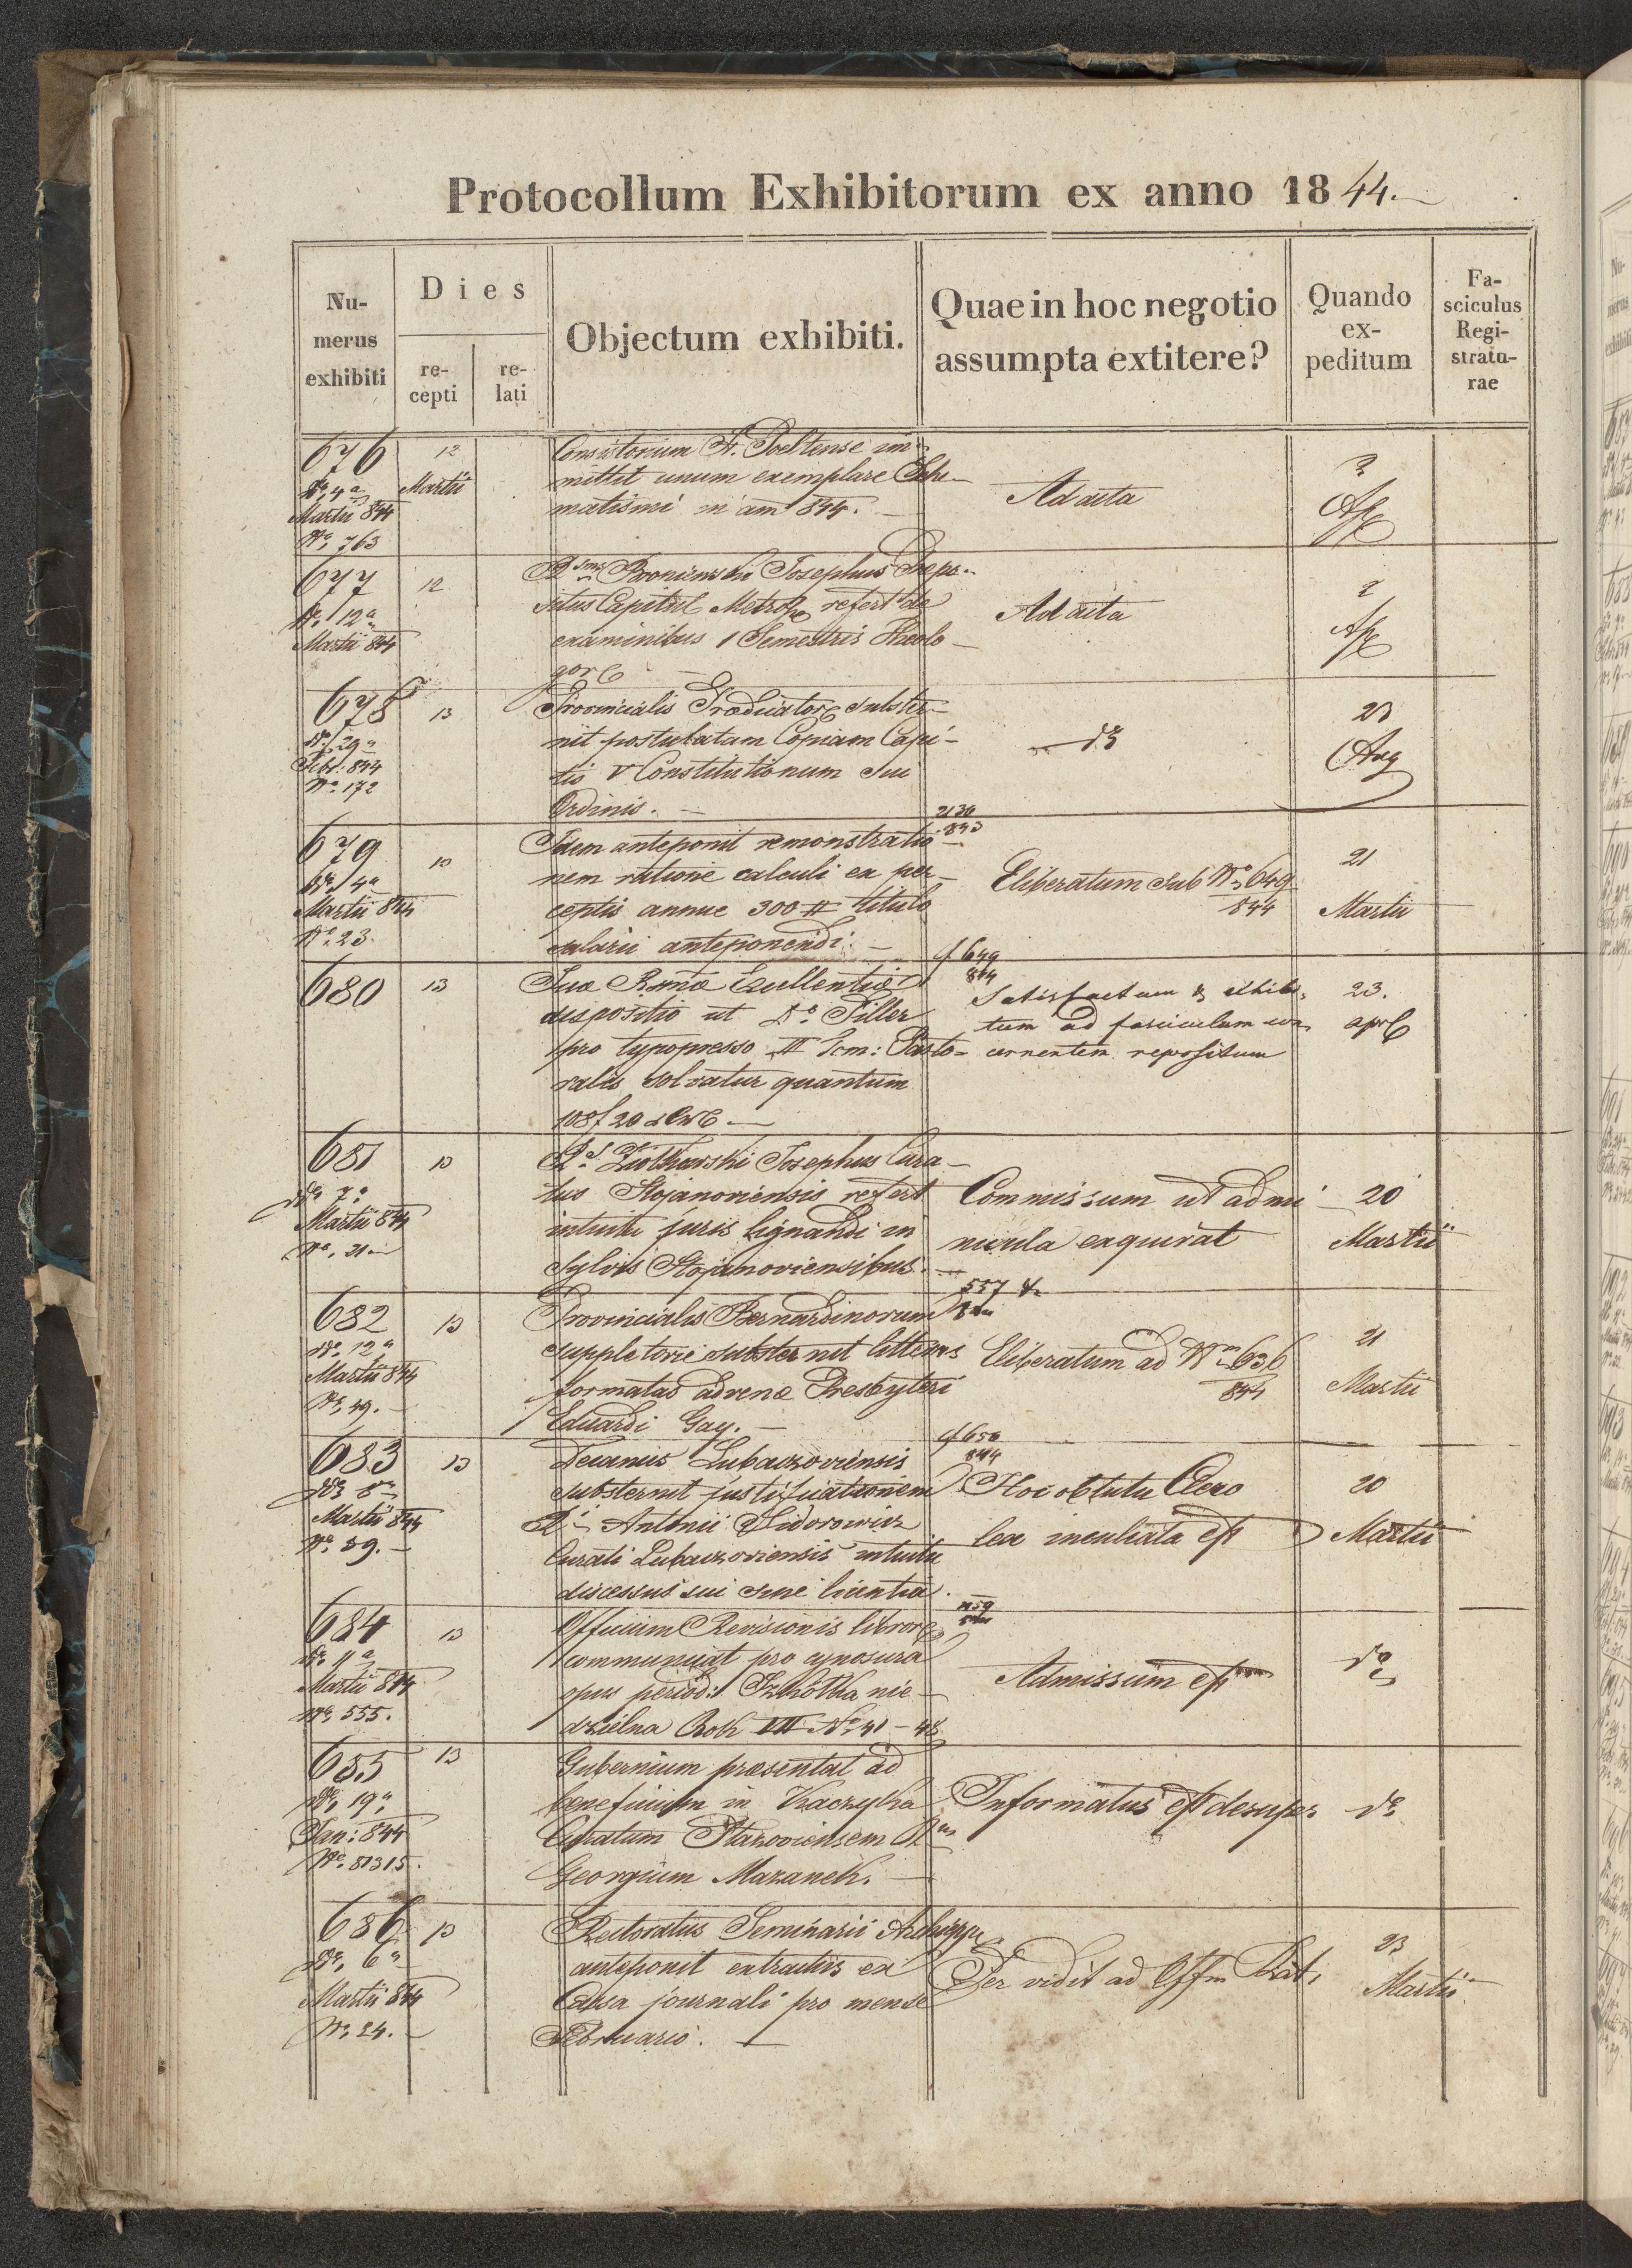 Protocollum Exhibitorum ex anno 1844.
Nu-
merus
exhibiti
Dies
re-
cepti
re-
lati
Objectum exhibiti.
Quae in hoc negotio
assumpta extitere?
Quando
ex-
peditum
Fa-
sciculus
Regi-
stratu-
rae
676
12
Martii
Dº 4ª
Martii 844
Nº 763
Consistorium St. Poeltense im-
mittit unum exemplare Sche-
matismi in am 844.
Ad acta
677
12
Dº 12ª
Martii 844
Josephus Praepo-
situs Capituli Metrop refert de
examinibus 1 Semestris Theolo-
gor
Ad acta
678
13
Dº 29ª
Febr: 844
Nº 172
Provincialis Praedicator subster-
nit postulatam Copiam Capi-
tis V Constitutionum Sui
Ordinis.
23
Aug
679
13
Dº 4ª
Martii 844
Nº 23.
Idem anteponit remonstratio-
nem ratione calculi ex per-
ceptis annue 300 # titulo
salarii anteponendi.
2130
843
Eliberatum sub Nº 649
844
21
Martii
680
13
Suae Rmae Excellentiae
dispositio ut Dº Piller
pro typopresso II Tom: Pasto-
ralis solvatur quantum
108f 20
cf 649
844
Satisfactum & exhibi-
tum ad fasciculum con-
cernentem repositum
23.
apr
681
13
Dº 7ª
Martii 844
Nº 21
Josephus Cura-
tus Stojanoviensis refert
intuitu juris lignandi in
sylvis Stojanoviensibus.
Commissum ut admi-
nicula exquirat
20
Martii
682
13
Dº 12ª
Martii 844
Nº 49.
Provincialis Bernardinorum
suppletorie substernit litteras
formatas advenae Presbyteri
Eduardi Gay.
557
Eliberatum ad Nm 636
844
21
Martii
683
13
Dº 8ª
Martii 844
Nº 39.
Decanus Lubaczoviensis
substernit justificationem
Antonii Sidorowicz
Curati Lubaczoviensis intuitu
discessus sui sine licentia.
cf 650
844
Hoc obtutu Clero
lex inculcata est
20
Martii
684
13
Dº 11ª
Martii 844
Nº 555.
Officium Revisionis libror
communicat pro cynosura
opus period: Szkółka nie-
dzielna Rok VIII Nº 41 - 48
459
Admissum est
dº
685
13
Dº 19ª
Jan: 844
Nº 81315.
Gubernium praesentat ad
beneficium in Kaczyka
Curatum
Georgium Mazanek.
Informatus est desuper
dº
686
13
Dº 6ª
Martii 844
Nº 24.
Rectoratus Seminarii Archiepp
anteponit extractus ex
Cassa journali pro mense
Februario.
Per vidit ad Offm Rat.
23
Martii